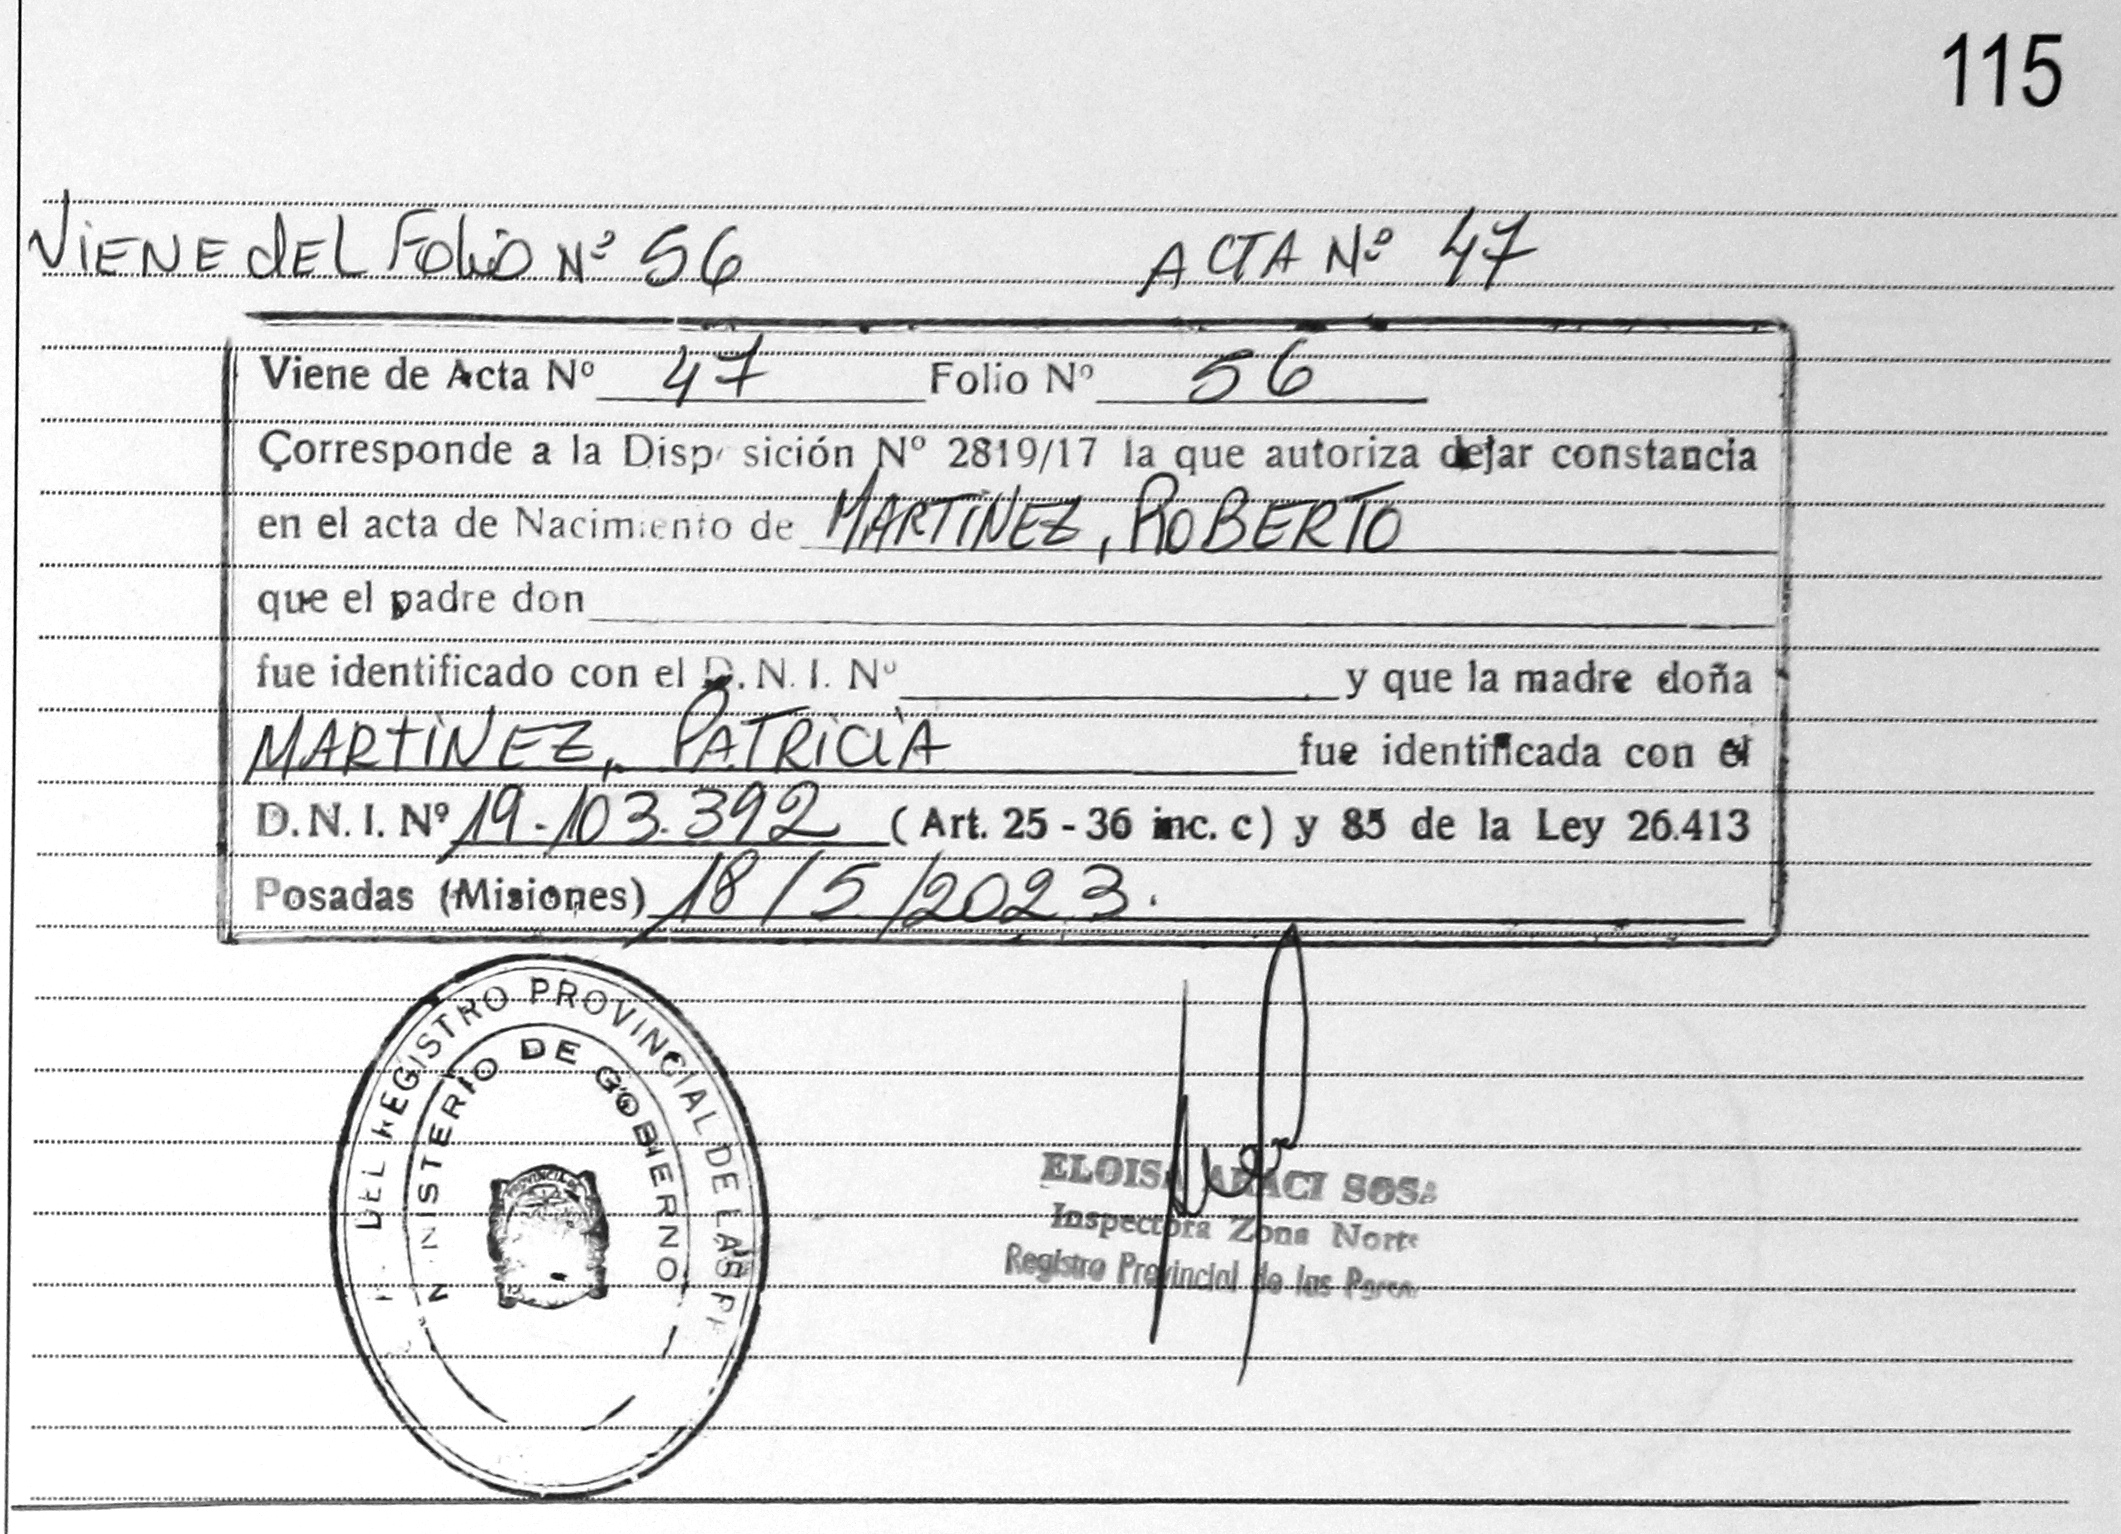 115
VIENE dEL Folio Nº 56 ACTA Nº 47
Viene de Acta Nº 47 Folio Nº 56
Corresponde a la Disposición Nº 2819/17 la que autoriza dejar constancia
en el acta de Nacimiento de MARTINEZ, ROBERTO
que el padre don
fue identificado con el D.N.I. Nº y que la madre doña
MARTINEZ, PATRICIA fue identificada con el
D.N.I. Nº 19.103.392 (Art. 25 - 36 inc. c) y 85 de la Ley 26.413
Posadas (Misiones) 18/5/2023.
DEL REGISTRO PROVINCIAL DE LAS
MINISTERIO DE GOBIERNO
ELOISA ARACI SOSA
Inspectora Zona Norte
Registro Provincial de las